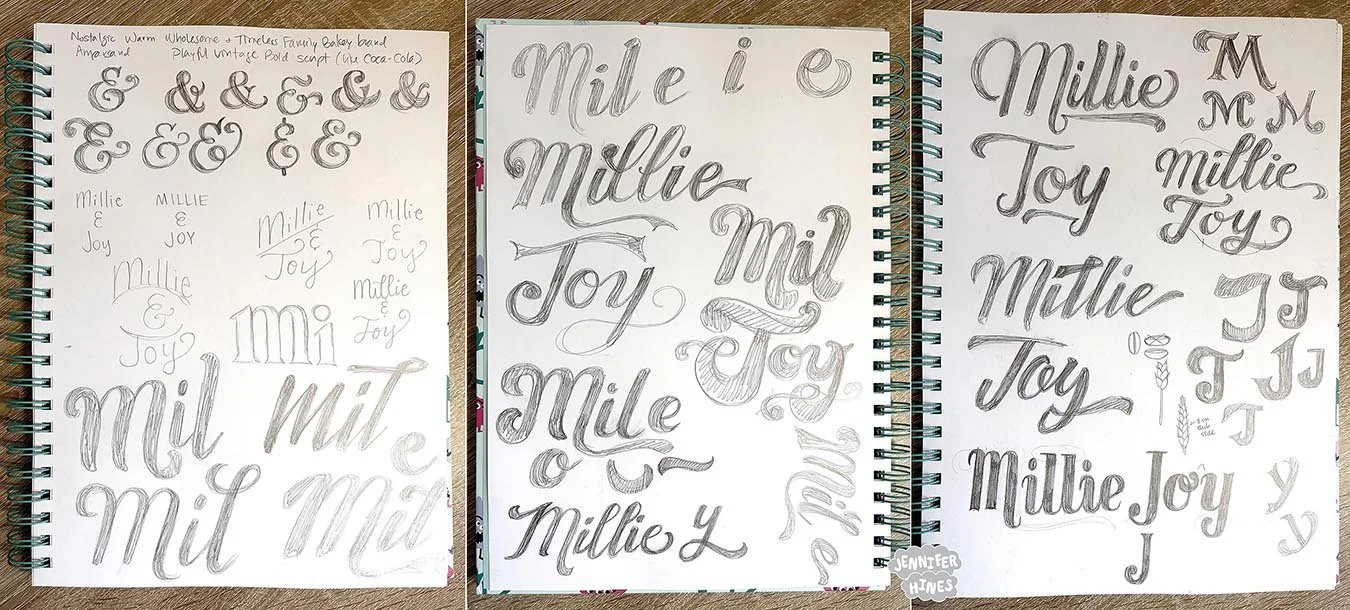 Nostalgic Warm Wholesome + Timeless Family Bakery brand
Ampersand Playful Vintage Bold script (like Coca-Cola)
& & & & & &
& & & & &
Millie
&
Joy
MILLIE
&
JOY
Millie
&
Joy
Millie
&
Joy
Millie
&
Joy
Mi
Millie
&
Joy
Mil
Mil
e
Mil
Mil
Mil e i e
Millie
Joy
Mil
Joy
e
Mile
o
Millie y
Mil e
Millie
M
M M
Joy
Millie
Joy
Millie
J J
Joy
J J J
J
side
Millie Joy
J
y
y
JENNIFER
HINES